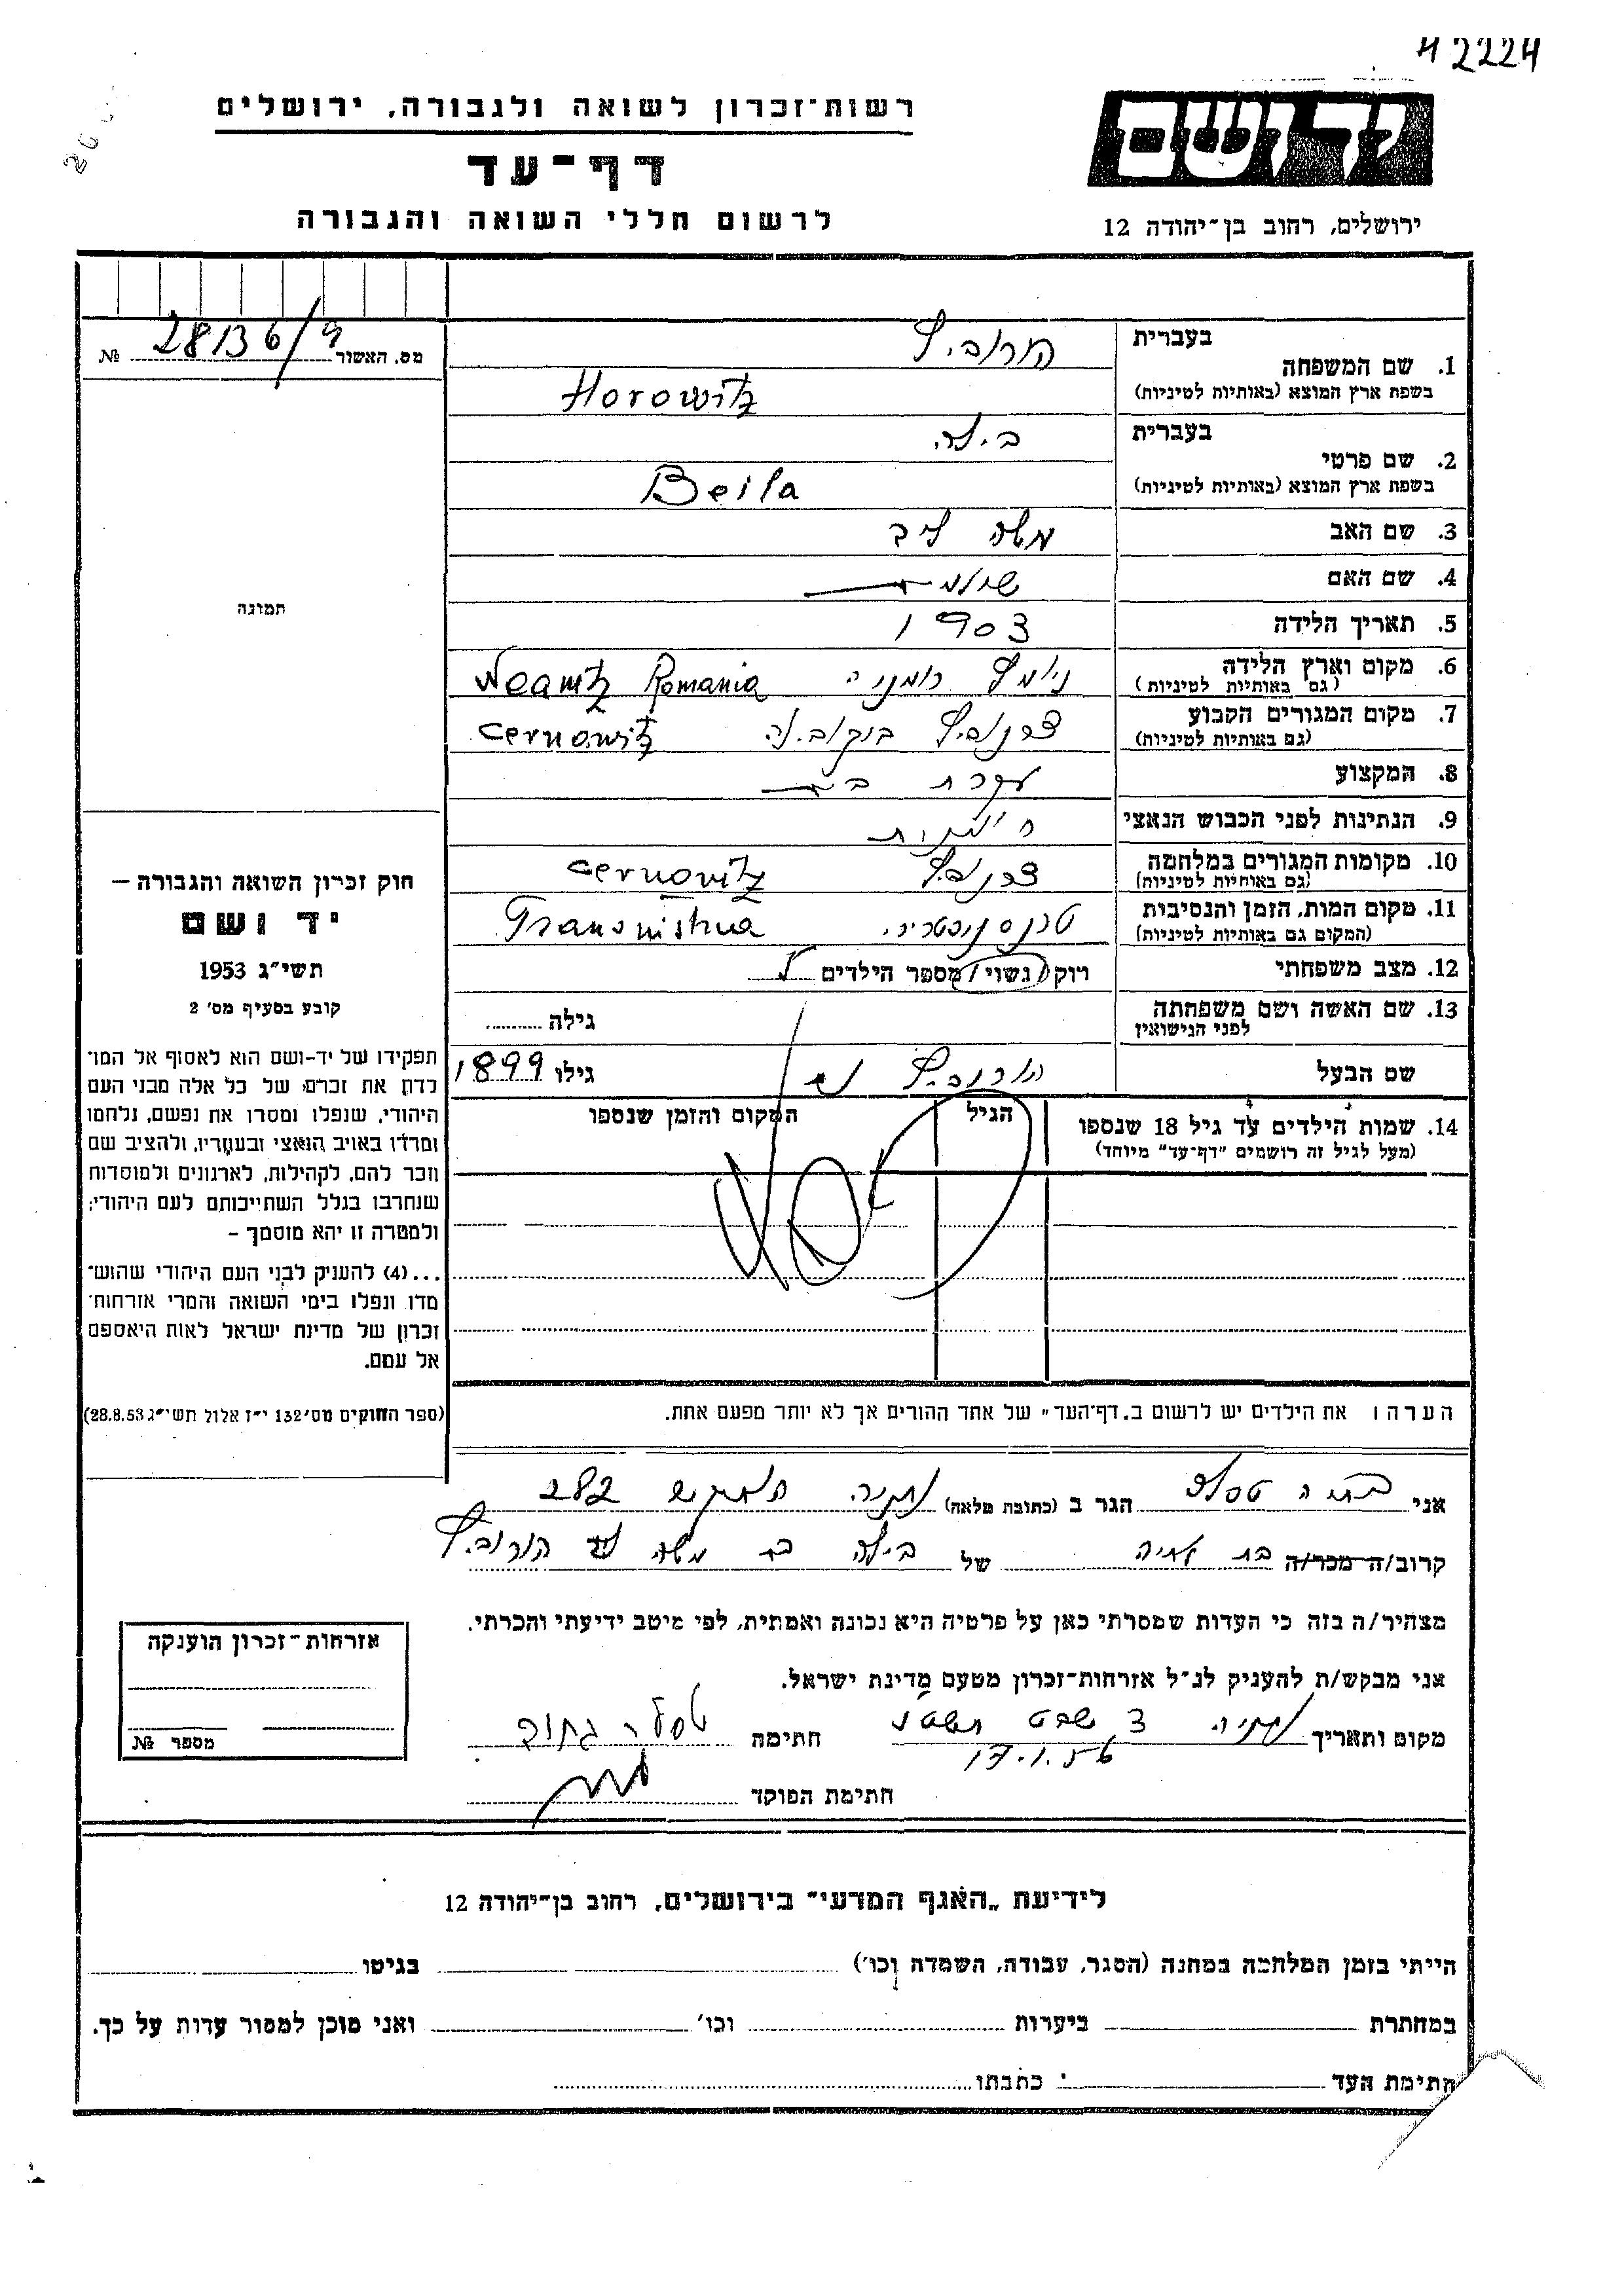 H 2224
רשות־זכרון לשואה ולגבורה, ירושלים
דף־עד
לרשום חללי השואה והגבורה
יד ושם
ירושלים, רחוב בן־יהודה 12
מס. האשור 28136/9 №
תמונה
חוק זכרון השואה והגבורה –
יד ושם
תשי"ג 1953
קובע בסעיף מס' 2
תפקידו של יד-ושם הוא לאסוף אל המו־
לדת את זכרם של כל אלה מבני העם
היהודי, שנפלו ומסרו את נפשם, נלחמו
ומרדו באויב הנאצי ובעוזריו, ולהציב שם
וזכר להם, לקהילות, לארגונים ולמוסדות
שנחרבו בגלל השתייכותם לעם היהודי;
ולמטרה זו יהא מוסמך –
...(4) להעניק לבני העם היהודי שהוש־
מדו ונפלו בימי השואה והמרי אזרחות־
זכרון של מדינת ישראל לאות היאספם
אל עמם.
(ספר החוקים מס' 132 י"ז אלול תשי"ג 28.8.53)
1. שם המשפחה בעברית הורוביץ
בשפת ארץ המוצא (באותיות לטיניות) Horowitz
2. שם פרטי בעברית בילה
בשפת ארץ המוצא (באותיות לטיניות) Beila
3. שם האב משה ליב
4. שם האם
5. תאריך הלידה 1903
6. מקום וארץ הלידה (גם באותיות לטיניות) ניאמץ רומניה Neamtz Romania
7. מקום המגורים הקבוע (גם באותיות לטיניות) צרנוביץ בוקובינה Cernowitz
8. המקצוע עקרת בית
9. הנתינות לפני הכבוש הנאצי
10. מקומות המגורים במלחמה (גם באותיות לטיניות) צרנוביץ Cernovitz
11. מקום המות, הזמן והנסיבות (המקום גם באותיות לטיניות) טרנסניסטריה
12. מצב משפחתי רווק/נשוי/מספר הילדים
13. שם האשה ושם משפחתה לפני הנישואין גילה
שם הבעל הורוביץ גילו 1899
14. שמות הילדים עד גיל 18 שנספו הגיל המקום והזמן שנספו
(מעל לגיל זה רושמים "דף־עד" מיוחד)
הערה: את הילדים יש לרשום ב"דף־העד" של אחד ההורים אך לא יותר מפעם אחת.
אני הגר ב (כתובת מלאה) נתניה 282
קרוב/ה מכר/ה בת אחיה של בילה בת משה ליב הורוביץ
מצהיר/ה בזה כי העדות שמסרתי כאן על פרטיה היא נכונה ואמתית, לפי מיטב ידיעתי והכרתי.
אני מבקש/ת להעניק לנ"ל אזרחות־זכרון מטעם מדינת ישראל.
מקום ותאריך נתניה שבט 17.1.56 חתימה
חתימת הפוקד
אזרחות־זכרון הוענקה
מספר №
לידיעת "האגף המדעי" בירושלים, רחוב בן־יהודה 12
הייתי בזמן המלחמה במחנה (הסגר, עבודה, השמדה וכו') בגיטו
במחתרת ביערות וכו' ואני מוכן למסור עדות על כך.
חתימת העד כתבתו